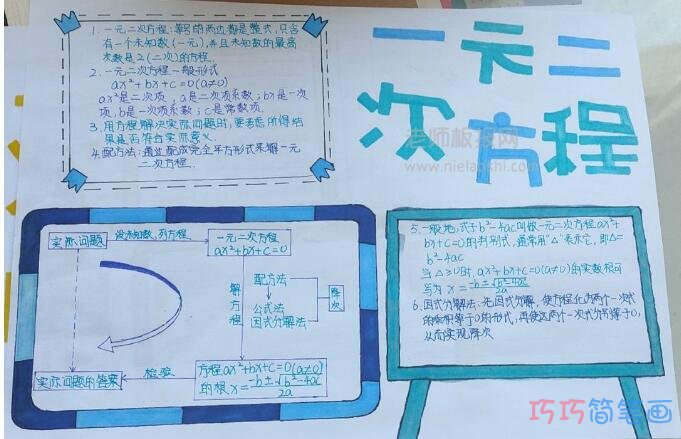 一元二
次方程
1. 一元二次方程:等号的两边都是整式,只含
有一个未知数(一元),并且未知数的最高
次数是2(二次)的方程.
2. 一元二次方程一般形式
ax²+bx+c=0(a≠0)
ax²是二次项,a是二次项系数;bx是一次
项,b是一次项系数;c是常数项
3. 用方程解决实际问题时,要考虑所得结
果是否符合实际意义
4. 配方法:通过配成完全平方形式来解一元
二次方程
实际问题
设未知数,列方程
一元二次方程
ax²+bx+c=0
解方程
配方法
公式法
因式分解法
降次
实际问题的答案
检验
方程ax²+bx+c=0(a≠0)
的根x=-b±√b²-4ac/2a
5. 一般地,式子b²-4ac叫做一元二次方程ax²+
bx+c=0的判别式,通常用"△"表示它,即△=
b²-4ac
当△≥0时,ax²+bx+c=0(a≠0)的实数根可
写为x=-b±√b²-4ac/2a
6. 因式分解法:先因式分解,使方程化为两个一次式
的乘积等于0的形式,再使这两个一次式分别等于0,
从而实现降次
老师板报网
www.nielaoshi.com
巧巧简笔画